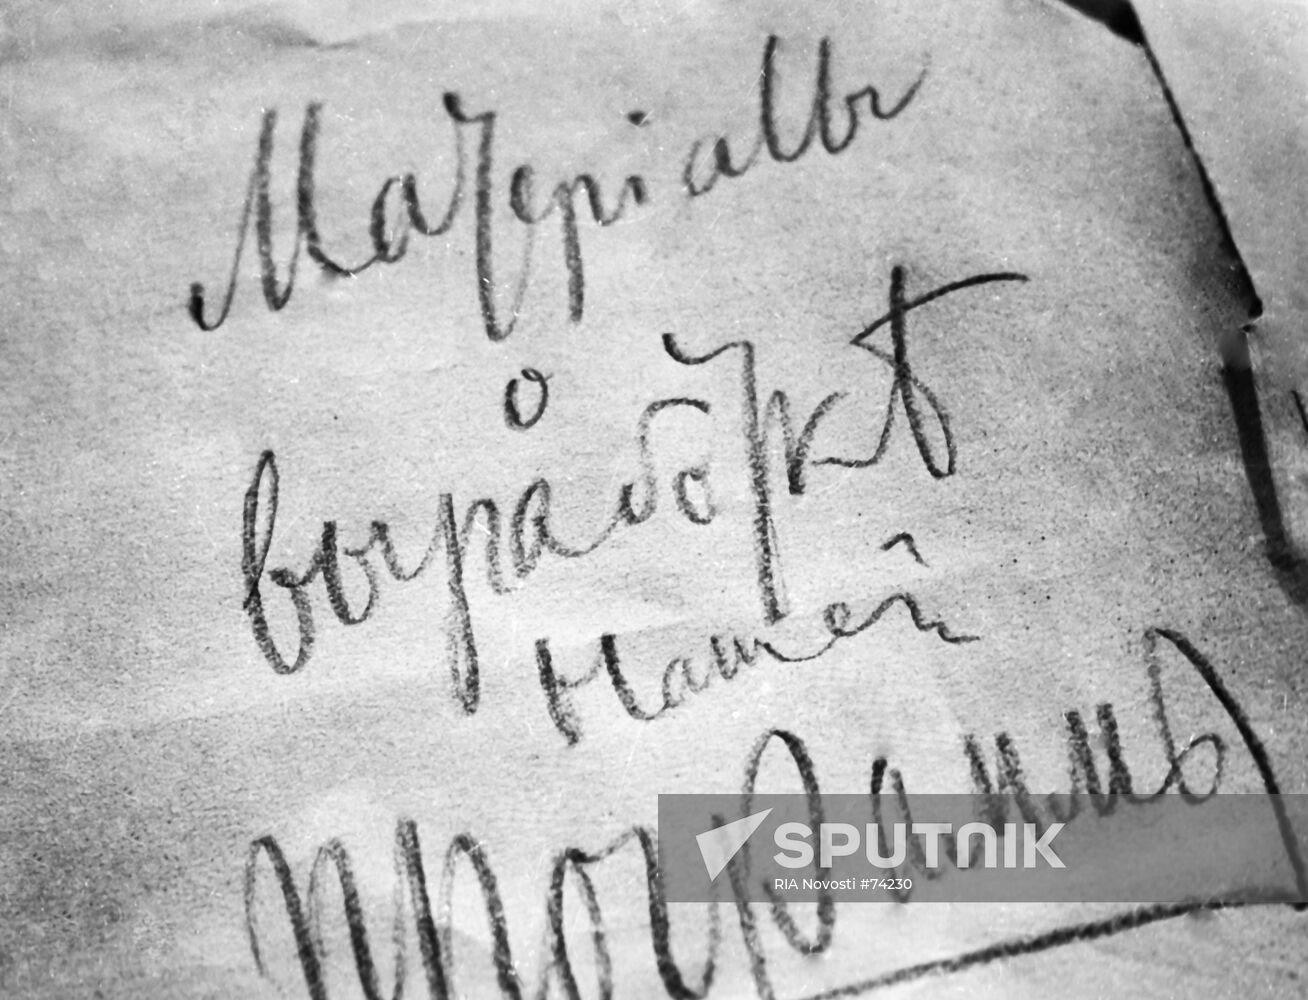 Матеріалы
о
выработкѣ
нашей
программы
SPUTNIK
RIA Novosti #74230